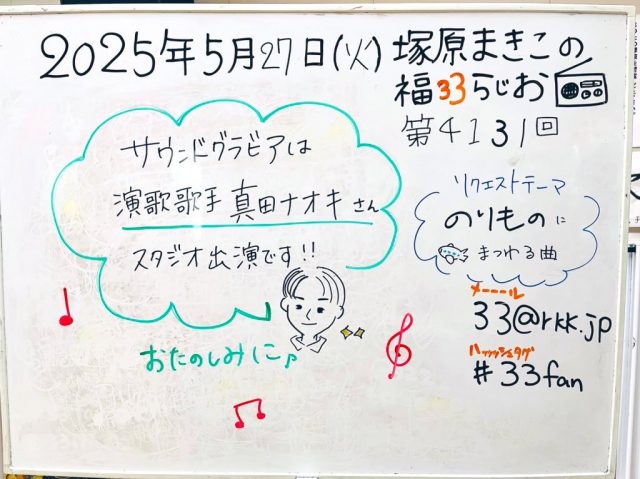 2025年5月27日(火) 塚原まきこの
福33らじお
第4131回
サウンドグラビアは
演歌歌手 真田ナオキさん
スタジオ出演です!!
おたのしみに♪
リクエストテーマ
のりものに
まつわる曲
メーール
33@rkk.jp
ハッシュタグ
#33fan